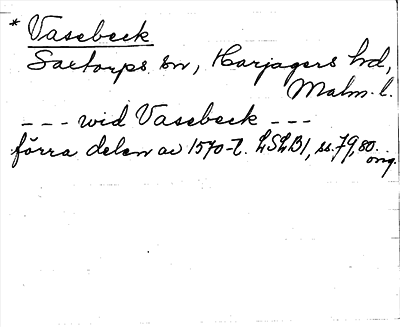 * Vasebeck
Saxtorps sn, Harjagers hd,
Malm. l.
--- wid Vasebeck ---
förra delen av 1570-t. LSLB1, ss. 79, 80.
orig.